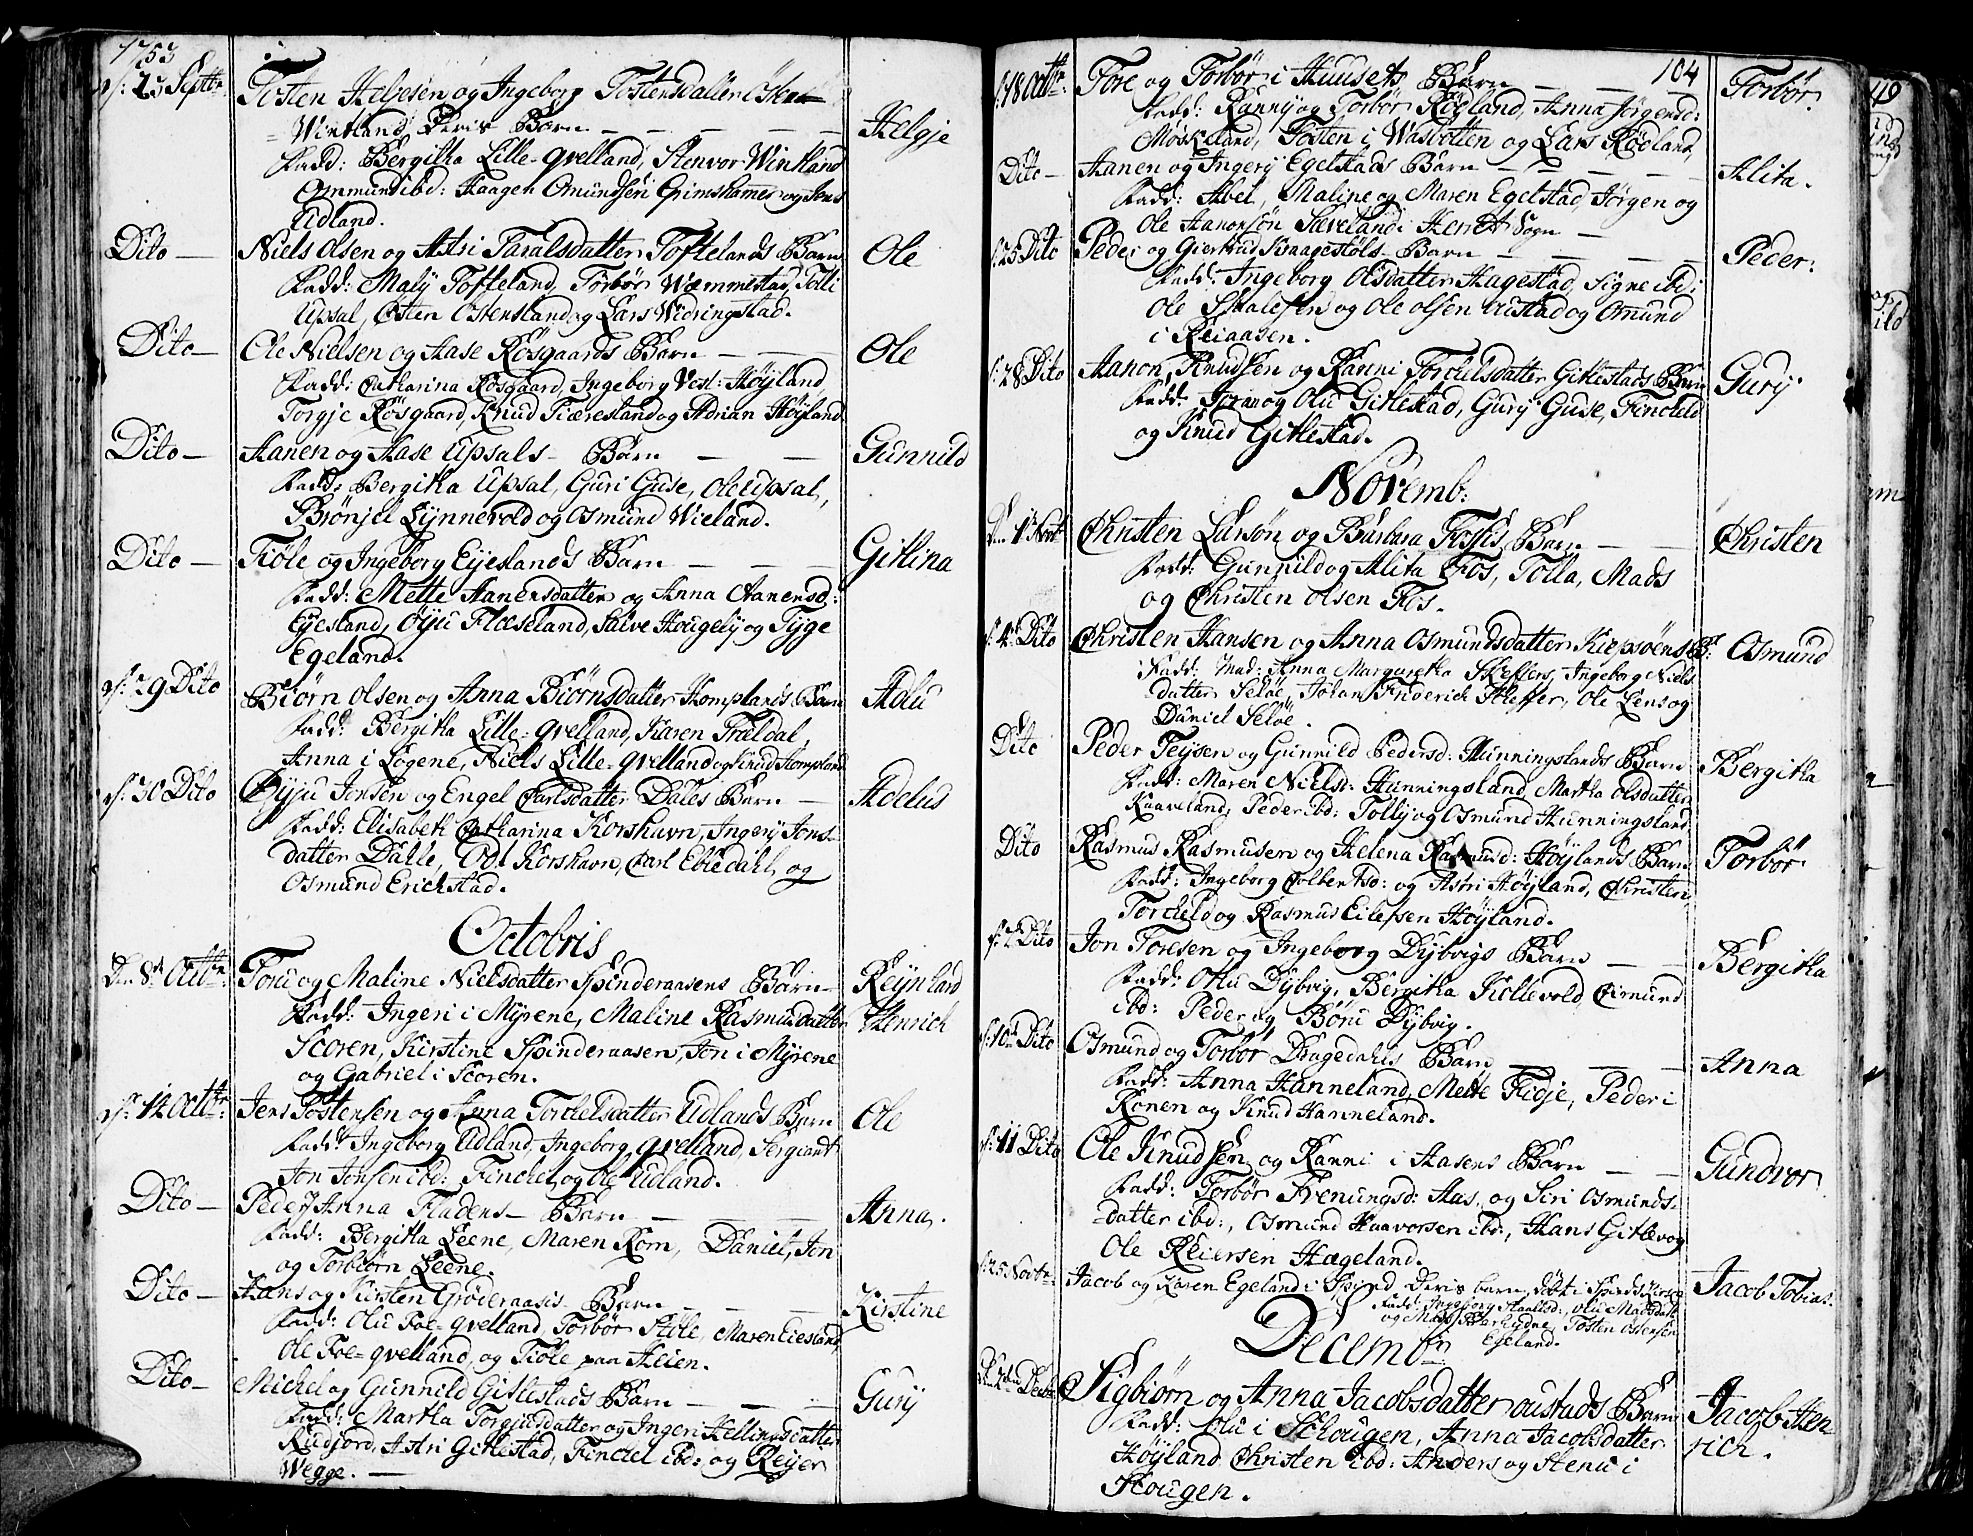 1753
d: 23 Septbr:
Tosten Helgesen og Ingeborg Tostensdatter
Wintland Deris Barn — — — — —
Helgje
Fadd: Bergitha Lille-qvelland, Stenvor Wintland
Omund ibd: Haagen Omundsen Grimshamer og Jens
Udland.
Dito —
Niels Olsen og Astri Taralsdatter Toftelands Barn
Ole
Fadd: Maly Tofteland, Torbør Wemmestad, Tolli
Upsal, Østen Ostensland og Lars Widringstad.
Dito —
Ole Nielsen og Aase Røsgaards Barn — — —
Ole
Fadd: Catharina Røsgaard, Ingeborg Vest: Høyland
Torgje Røsgaard, Knud Tiæresland og Adrian Høyland
Dito —
Aanen og Aase Upsals — Barn — —
Gunnild
Fadd: Bergitha Upsal, Guri Guse, Ole Upsal,
Brønjel Lynnevold og Osmund Wieland.
Dito —
Tiøle og Ingeborg Eyeslands Barn — — —
Gitlina
Fadd: Mette Aanensdatter og Anna Aanensd:
Eyesland, Øyu Floeseland, Salve Hougely og Tyge
Egeland.
d: 29 Dito
Biørn Olsen og Anna Biørnsdatter Homplands Barn
Adlu
Fadd: Bergitha Lille-qvelland, Karen Trældal,
Anna i Løgene, Niels Lille-qvelland og Knud Hompland
d: 30 Dito
Øyju Jensen og Engel Carlsdatter Dales Barn —
Adelus
Fadd: Elisabeth Catharina Korshavn, Ingerj Jons-
datter Dalle, Odt Korshavn, Carl Ebtedahl, og
Osmund Erichstad.
Octobris
Den 8de Octbr:
Toru og Maline Nielsdatter Spinderaasens Barn —
Reijnhard
Henrich
Fadd: Ingeri i Myrene, Maline Rasmusdatter
Scoren, Kirstine Spinderaasen, Jon i Myrene
og Gabriel i Scoren.
d: 14 Octbr:
Jens Tostensen og Anna Torkelsdatter Udlands Barn
Ole
Fadd: Ingeborg Udland, Ingeborg qvelland, Sergiant
Jon Jonsen ibd: Finckel og Ole Udland.
Dito —
Peder Anna Fladens — Barn — — —
Anna.
Fadd: Bergitha Leene, Maren Rom, Daniel, Jon
og Torbiørn Leene.
Dito —
Hans og Kirsten Grøderaasis Barn — — —
Kirstine
Fadd: Olu Foe-qvelland, Torbør Støle, Maren Eiesland
Ole Foe-qvelland, og Tiøle paa Heien.
Dito —
Michel og Gunnild Gitlestads Barn — — —
Gurij
Fadd: Martha Torgiusdatter og Ingeri Hellingsdatter
Rudjord, Astri Gitlestad, Finckel ibd: og Reijer
Wegge. —
104
d: 18 Octbr:
Tore og Torbør i Huusets Barn — — —
Torbør.
Fadd: Ranny og Torbør Røeland, Anna Jørgensd:
Møskeland, Tosten i Wasbotten og Lars Rødland,
Dito —
Aanen og Ingerj Egelstads Barn — — — —
Alita.
Fadd: Abel, Maline og Maren Egelstad, Jørgen og
Ole Aanonsøn Sæveland
d: 23 Dito
Peder og Giertrud Kraagestøls — Barn — — — —
Peder:
Fadd: Ingeborg Olsdatter Hagestad, Signe ibd:
Ole og Ole Olsen og Omund
i Reiaasen.
d: 28 Dito
Aanon Knudsen og Ranni Torkelsdatter Gitlestads Barn
Gurij
Fadd: Toran og Olu Gitlestad, Gurij Guse, Finckeld
og Knud Gitlestad.
Novemb:
Den 1te Novbr
Christen Larsøn og Barbara Fosses Barn — —
Christen
Fadd: Gunnild og Alita Fos, Tolla, Mads
og Christen Olsen Fos.
d: 4de Dito
Christen Hansen og Anna Osmundsdatter Kiepsøens B:
Osmund
Fadd: Mad: Anna Margaretha Steffens, Ingeborg Niels
datter Seløe, Johan Friderich Steffer, Ole Lens og
Daniel Seløe.
Dito
Peder Teysen og Gunnild Pedersd: Hunningslands Barn
Bergitha
Fadd: Maren Nielsd: Hunningsland, Martha Olsdatter
Kaaveland, Peder ibd: Tollij og Osmund Hunningsland
Dito
Rasmus Rasmusen og Helena Rasmusd: Høylands Barn
Torbør
Fadd: Ingeborg Tolbentsd: og Astri Høyland, Christen,
Torckeld og Rasmus Eilefsen Høyland.
d: 7 Dito
Jon Toresen og Ingeborg Dybvigs Barn — —
Bergitha
Fadd: Olu Dybvig, Bergitha Kollevold, Osmund
ibd: Peder og Børu Dybvig.
d: 10de Dito
Osmund og Torbør Dragedahls Barn — — —
Anna
Fadd: Anna Hanneland, Mette Fidje, Peder i
Ronen og Knud Hanneland.
d: 11 Dito
Ole Knudsen og Ranni i Aasens Barn — —
Gundvor
Fadd: Torbør Frenungsd: Aas, og Siri Osmunds-
datter ibd:, Osmund Haavorsen ibd:, Hans Gitlevog
Ole Reiersen Hægeland.
d: 25 Novbr:
Jacob og Karen Egeland i Spind Deris barn, døbt i Spinds Kirke
Jacob Tobias.
Fadd: Ingeborg Olu Madsdatt
og Mads Tosten Ostensen
Egeland.
Decembr
Den Decbr
Sigbiørn og Anna Jacobsdatter Oustads Barn
Jacob Hen
rich.
Fadd: Olu i Schougen, Anna Jacobsdatter
Høyland Christen ibd: Anders og Stenu i
Hougen.